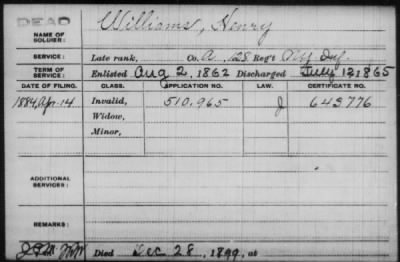 DEAD
Williams, Henry
NAME OF SOLDIER:
SERVICE: Late rank, Co. A, 128 Reg't N.Y. Inf.
TERM OF SERVICE: Enlisted Aug 2, 1862 Discharged July 12 1865
DATE OF FILING. CLASS. APPLICATION NO. LAW. CERTIFICATE NO.
1884, Apr. 14 Invalid, 510.965 J 643776
Widow,
Minor,
ADDITIONAL SERVICES:
REMARKS:
Died Dec 28, 1899, at